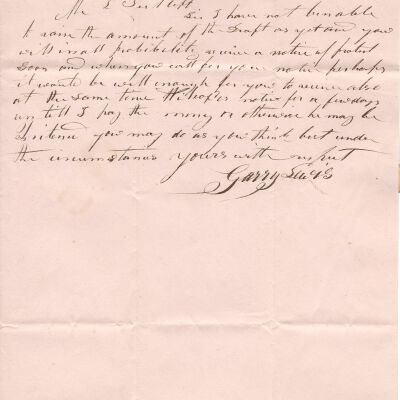 Mr L Sutliff
Sir I have not been able
to raise the amount of the Draft as yet and you
will in all probibility receive a notice of protest
soon and when you call for your notice perhaps
it would be well enough for you to receive also
at the same time notice for a few days
untill I pay the money or otherwise he may be
you may do as you think best under
the circumstances yours with respect
Garry Lewis